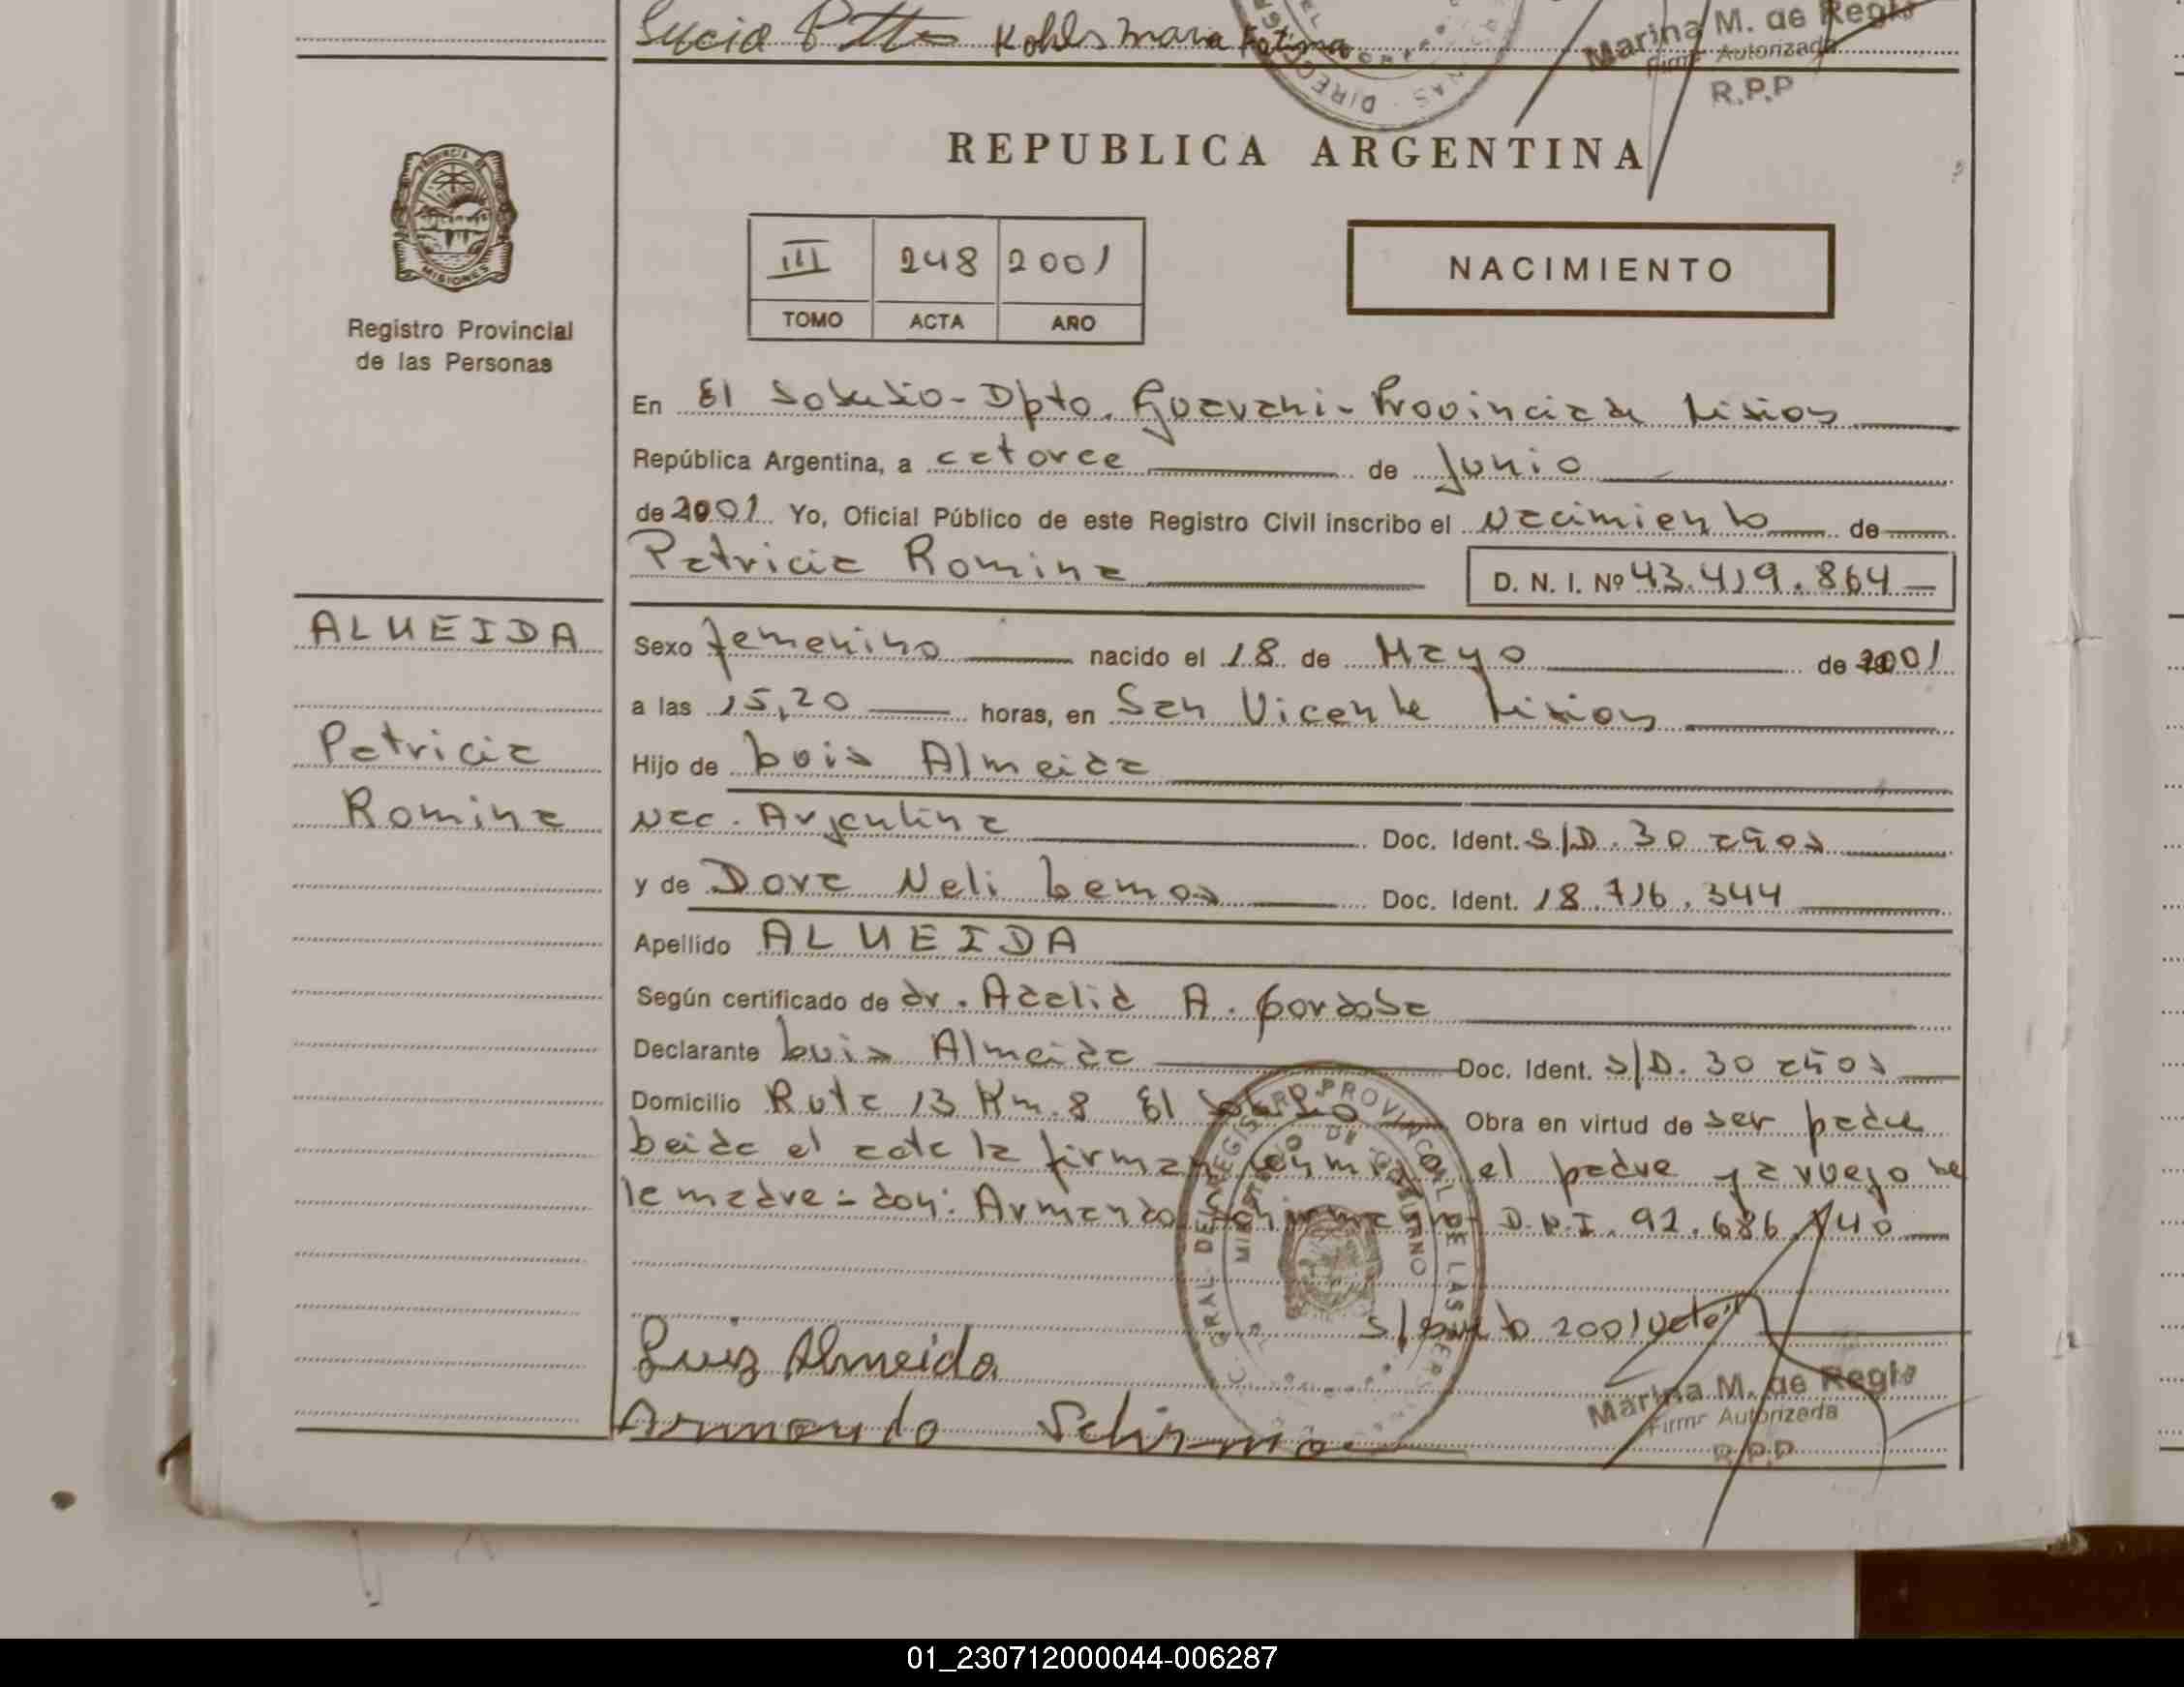 Lucia Kohls Maria Fatima
Marina M. de Regis
Firma Autorizada
R.P.P
DIRECC
REPUBLICA ARGENTINA
PROVINCIA DE
MISIONES
Registro Provincial
de las Personas
III 248 2001
TOMO ACTA AÑO
NACIMIENTO
En El Soberbio - Dpto. Guarani - Provincia de Misiones
República Argentina, a catorce de Junio
de 2001 Yo, Oficial Público de este Registro Civil inscribo el Nacimiento de
Patricia Romina
D. N. I. Nº 43.419.864
ALMEIDA
Patricia
Romina
Sexo femenino nacido el 18 de Mayo de 2001
a las 15,20 horas, en San Vicente Misiones
Hijo de Luis Almeida
Nac. Argentina Doc. Ident. S/D. 30 años
y de Dora Neli Lemos Doc. Ident. 18.716.344
Apellido ALMEIDA
Según certificado de dr. Adalid A. Cordoba
Declarante Luis Almeida Doc. Ident. S/D. 30 años
Domicilio Ruta 13 Km. 8 El Soberbio Obra en virtud de ser padre
Leida el acta la firman conmigo el padre y a ruego de
la madre = don: Armando D.N.I. 92.686.140
S/ 2001 vale"
C. GRAL. DEL REGISTRO PROVINCIAL DE LAS PERS
MINISTERIO DE GOBIERNO
Luiz Almeida
Armando
Marina M. de Regis
Firma Autorizada
R.P.P
01_230712000044-006287